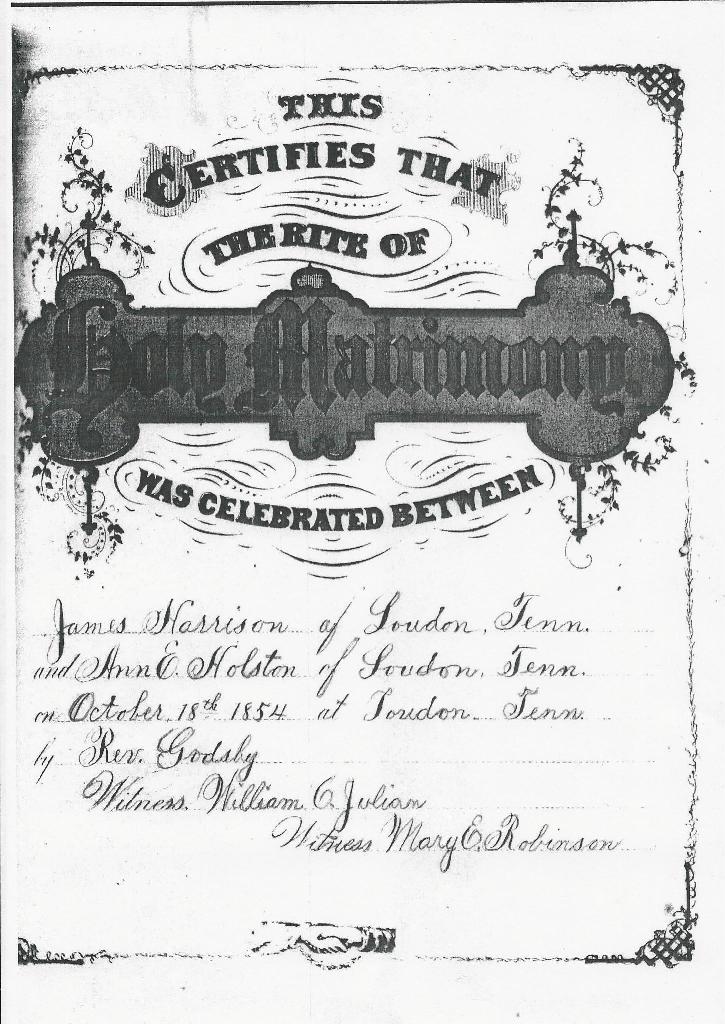 THIS
CERTIFIES THAT
THE RITE OF
Holy Matrimony,
WAS CELEBRATED BETWEEN
James Harrison of Loudon, Tenn.
and Ann E. Holston of Loudon, Tenn.
on October, 18th 1854 at Loudon Tenn.
by Rev. Godsby
Witness. William O. Julian
Witness Mary E. Robinson